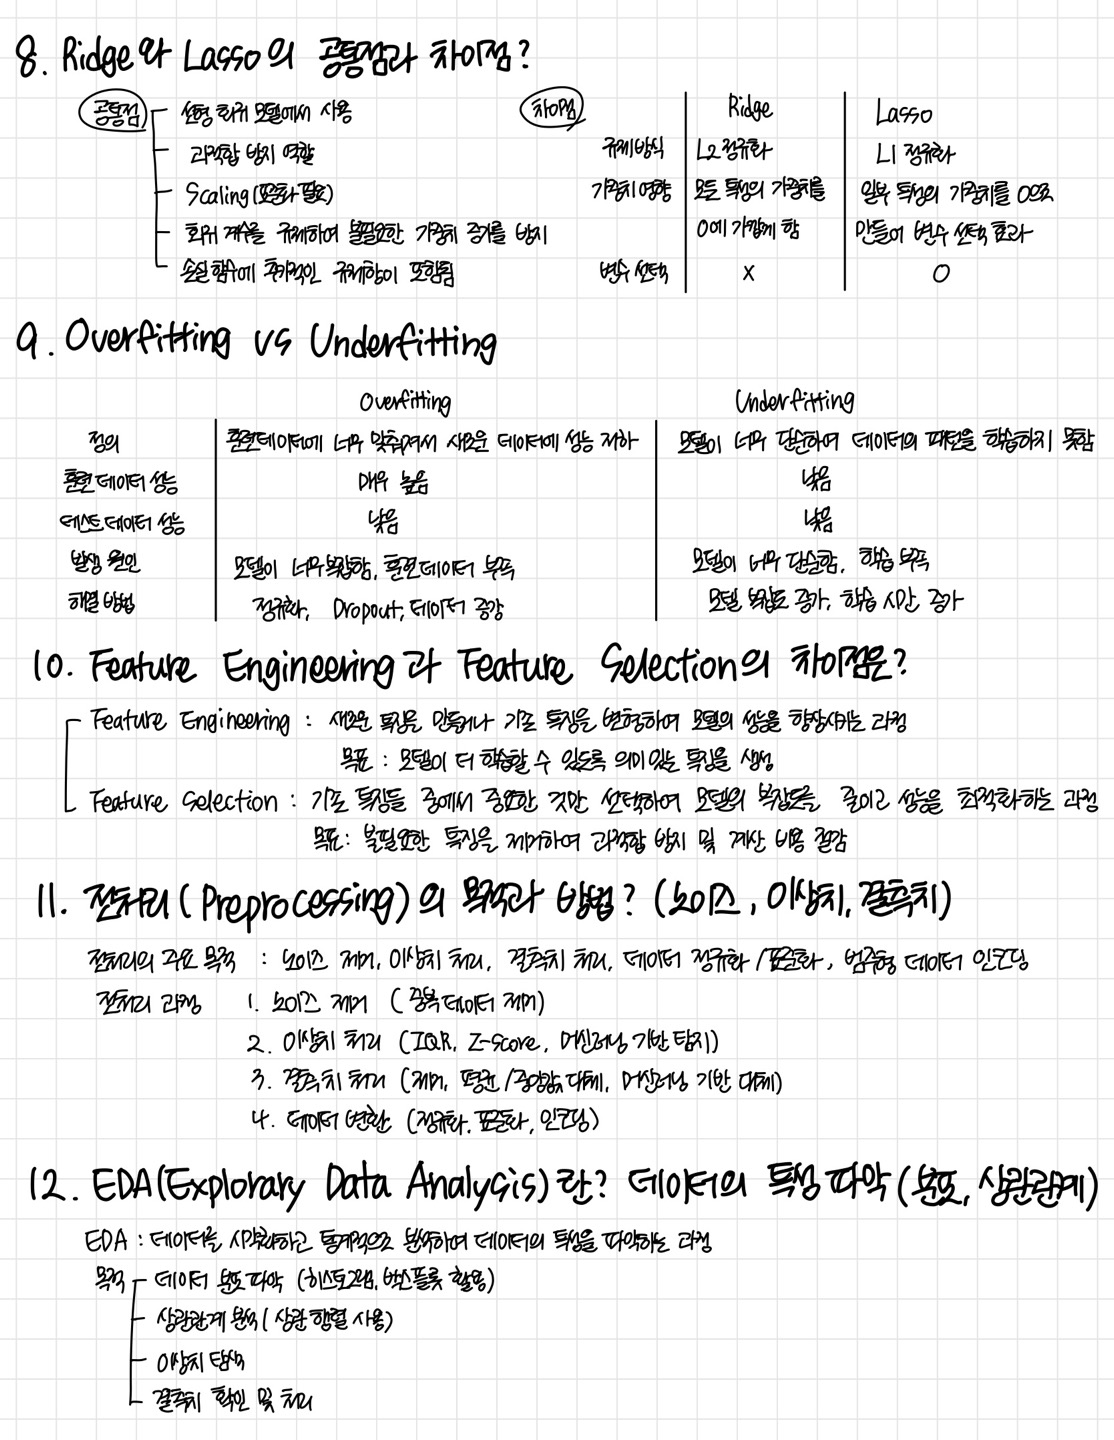 8. Ridge와 Lasso의 공통점과 차이점?
공통점 선형 회귀 모델에서 사용
과적합 방지 역할
Scaling(표준화 필요)
회귀 계수를 규제하여 불필요한 가중치 증가를 방지
손실함수에 추가적인 규제항이 포함됨
차이점 Ridge Lasso
규제방식 L2 정규화 L1 정규화
가중치 영향 모든 특성의 가중치를 일부 특성의 가중치를 0으로
0에 가깝게 함 만들어 변수 선택 효과
변수 선택 X O
9. Overfitting vs Underfitting
Overfitting Underfitting
정의 훈련데이터에 너무 맞춰져서 새로운 데이터에 성능 저하 모델이 너무 단순하여 데이터의 패턴을 학습하지 못함
훈련 데이터 성능 매우 높음 낮음
테스트 데이터 성능 낮음 낮음
발생 원인 모델이 너무 복잡함, 훈련데이터 부족 모델이 너무 단순함, 학습 부족
해결 방법 정규화, Dropout, 데이터 증강 모델 복잡도 증가, 학습 시간 증가
10. Feature Engineering과 Feature Selection의 차이점은?
Feature Engineering : 새로운 특징을 만들거나 기존 특징을 변형하여 모델의 성능을 향상시키는 과정
목표 : 모델이 더 학습할 수 있도록 의미있는 특징을 생성
Feature Selection : 기존 특징들 중에서 중요한 것만 선택하여 모델의 복잡도를 줄이고 성능을 최적화하는 과정
목표 : 불필요한 특징을 제거하여 과적합 방지 및 계산 비용 절감
11. 전처리(Preprocessing)의 목적과 방법? (노이즈, 이상치, 결측치)
전처리의 주요 목적 : 노이즈 제거, 이상치 처리, 결측치 처리, 데이터 정규화/표준화, 범주형 데이터 인코딩
전처리 과정 1. 노이즈 제거 (중복 데이터 제거)
2. 이상치 처리 (IQR, Z-score, 머신러닝 기반 탐지)
3. 결측치 처리 (제거, 평균/중앙값 대체, 머신러닝 기반 대체)
4. 데이터 변환 (정규화, 표준화, 인코딩)
12. EDA(Explorary Data Analysis)란? 데이터의 특성 파악(분포, 상관관계)
EDA : 데이터를 시각화하고 통계적으로 분석하여 데이터의 특성을 파악하는 과정
목적 데이터 분포 파악 (히스토그램, 박스플롯 활용)
상관관계 분석 (상관 행렬 사용)
이상치 탐색
결측치 확인 및 처리